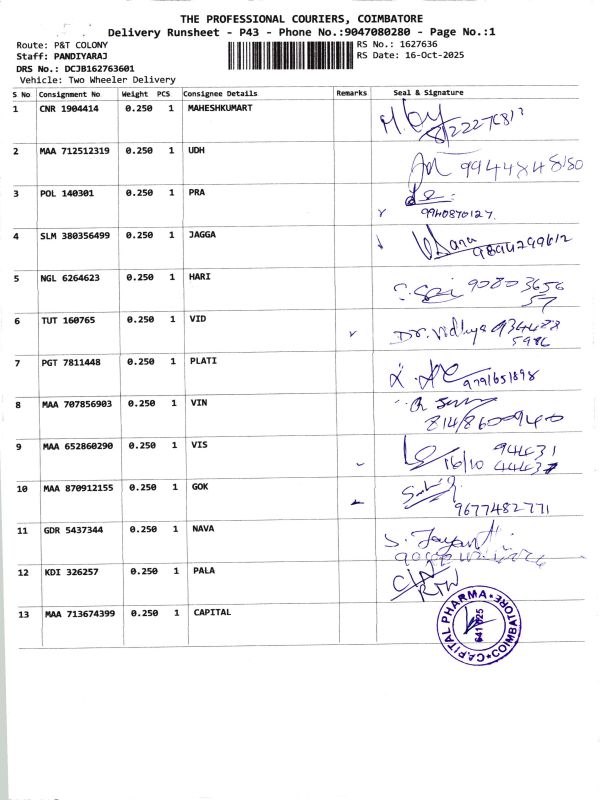 THE PROFESSIONAL COURIERS, COIMBATORE
Delivery Runsheet - P43 - Phone No.:9047080280 - Page No.:1
Route: P&T COLONY
Staff: PANDIYARAJ
DRS No.: DCJB162763601
Vehicle: Two Wheeler Delivery
RS No.: 1627636
RS Date: 16-Oct-2025
S No Consignment No Weight PCS Consignee Details Remarks Seal & Signature
1 CNR 1904414 0.250 1 MAHESHKUMART
2 MAA 712512319 0.250 1 UDH
3 POL 140301 0.250 1 PRA
9940870127.
4 SLM 380356499 0.250 1 JAGGA
9894299612
5 NGL 6264623 0.250 1 HARI
90803656
57
6 TUT 160765 0.250 1 VID
Dr. Vidhya 934428
5986
7 PGT 7811448 0.250 1 PLATI
9791651898
8 MAA 707856903 0.250 1 VIN
9 MAA 652860290 0.250 1 VIS
16/10
10 MAA 870912155 0.250 1 GOK
9677482771
11 GDR 5437344 0.250 1 NAVA
S. Jayanthi
12 KDI 326257 0.250 1 PALA
13 MAA 713674399 0.250 1 CAPITAL
CAPITAL PHARMA
641 025
COIMBATORE